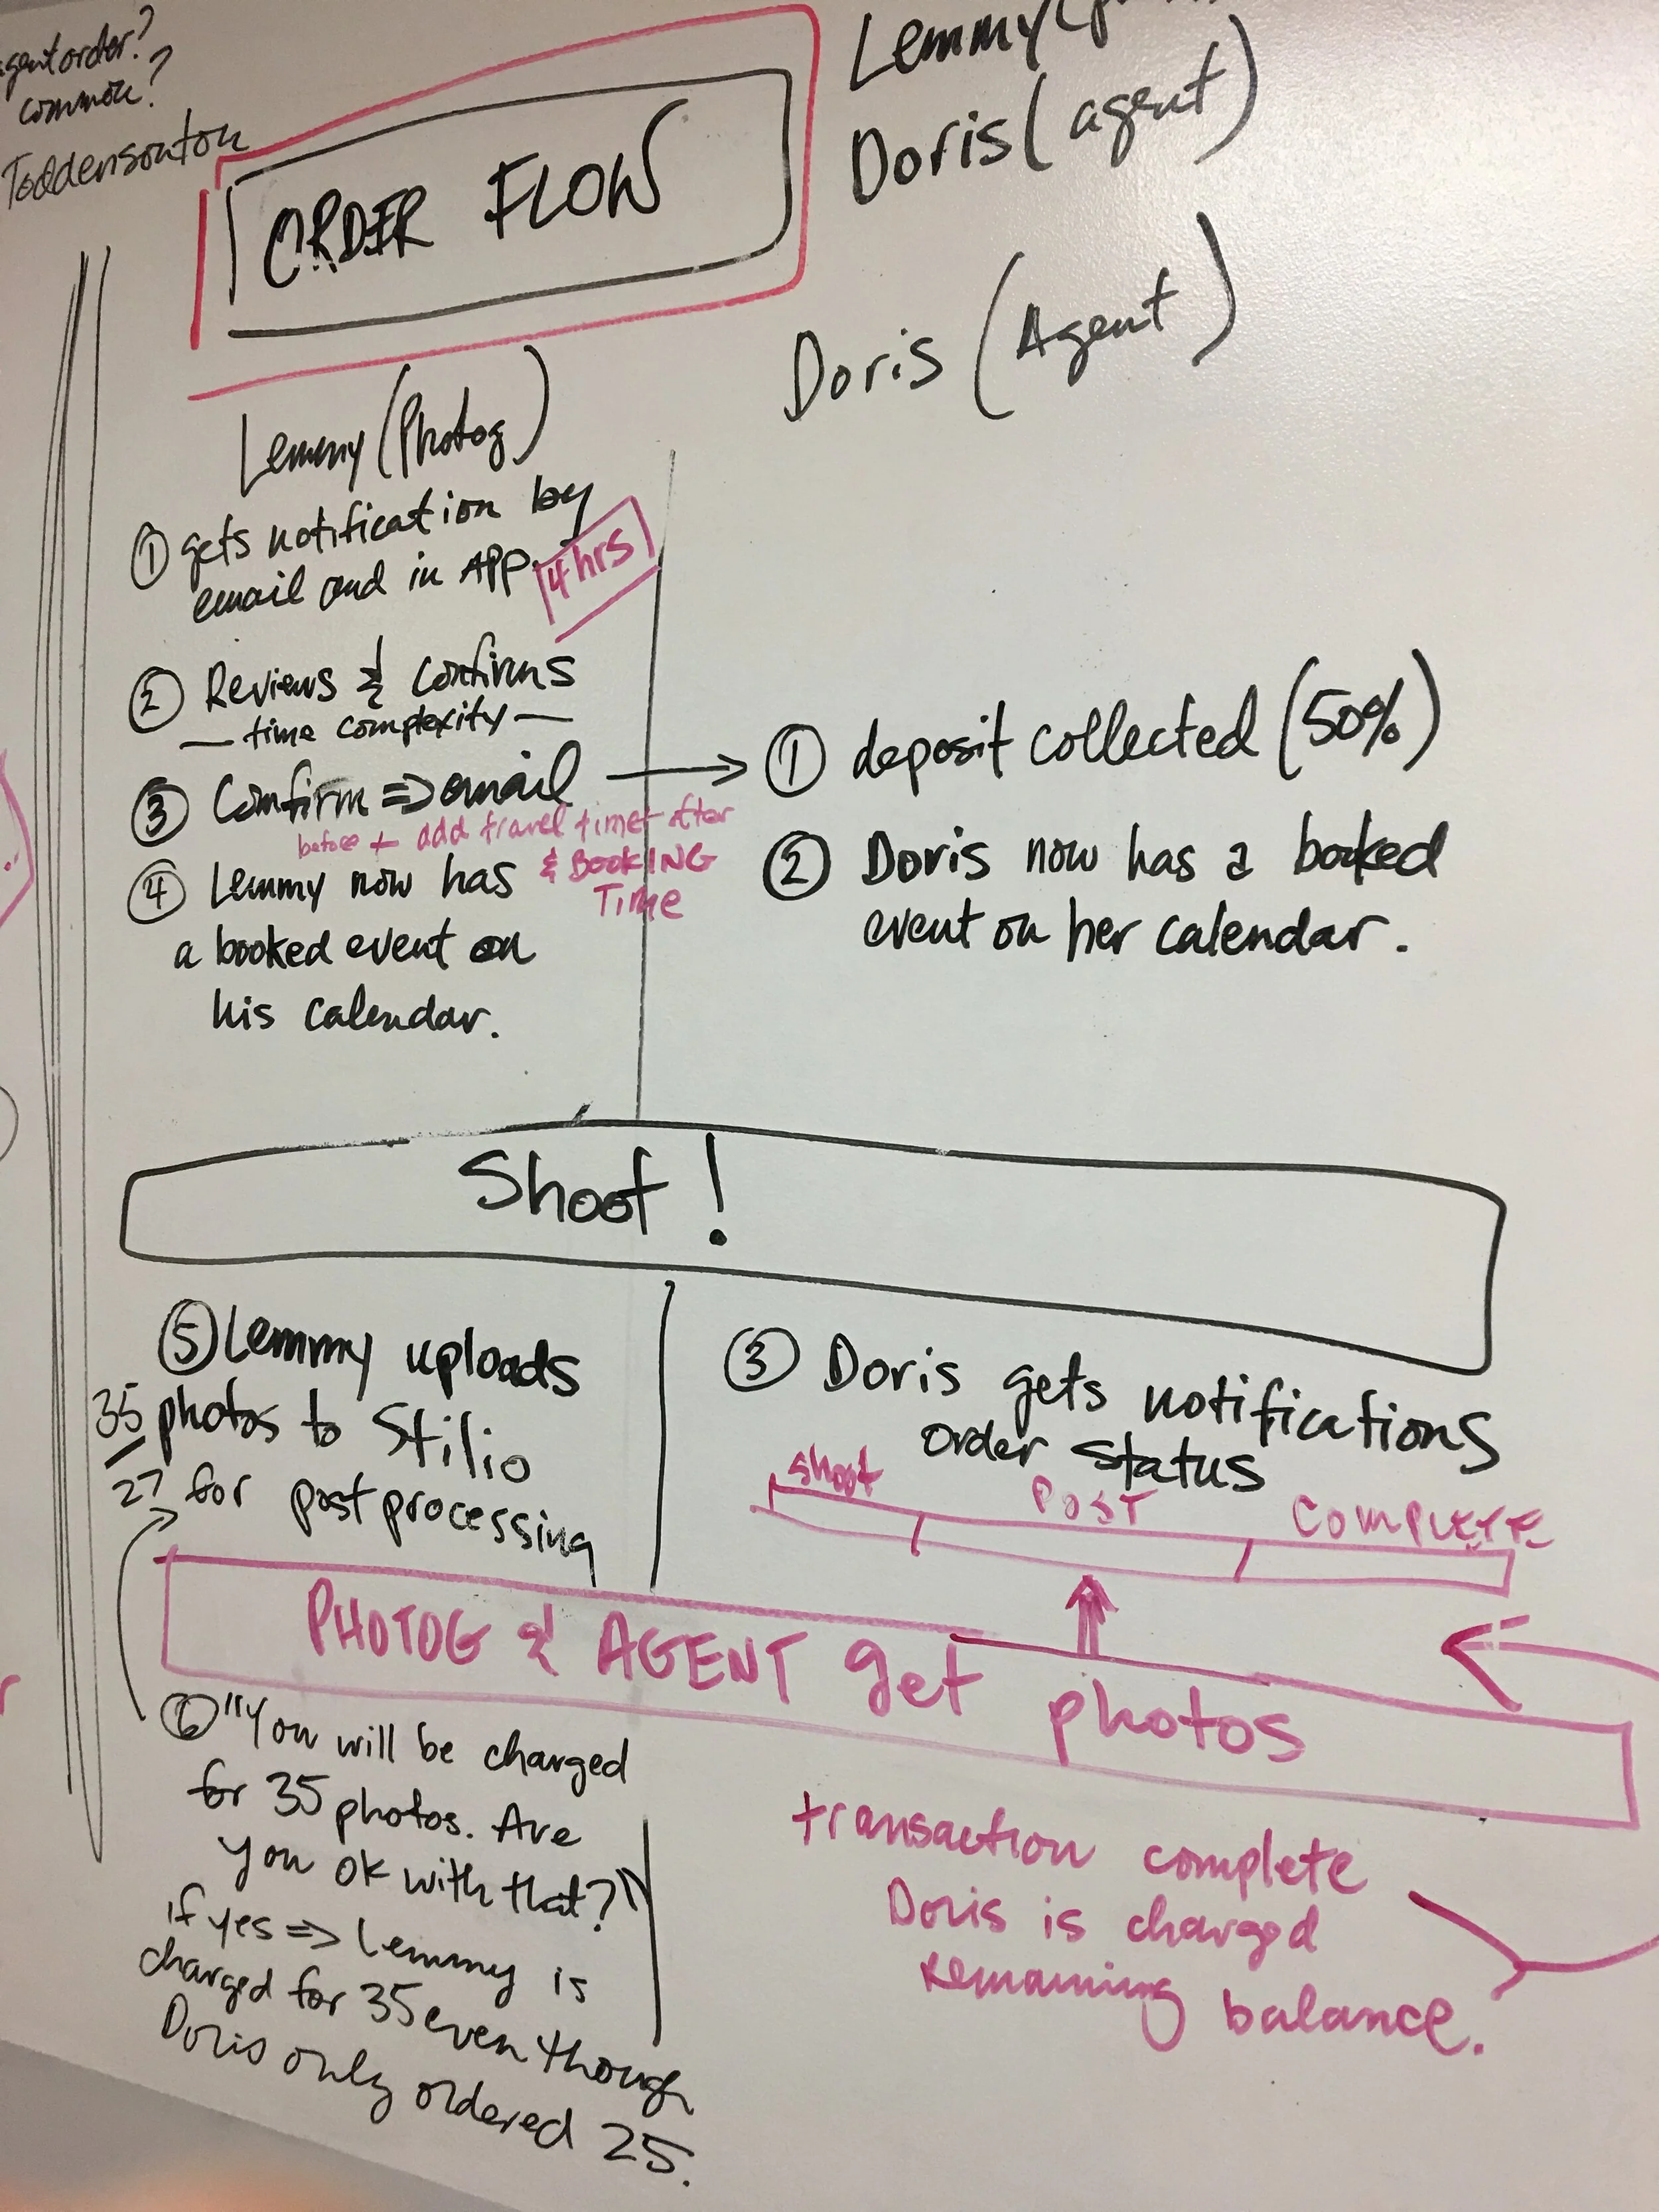 order?
common?
ORDER FLOW
Lemmy (
Doris (agent)
Doris (Agent)
Lemmy (Photog)
① gets notification by
email and in APP.
4 hrs
② Reviews & Confirms
— time complexity —
③ Confirm => email
before + add travel time after
& BOOKING
TIME
④ Lemmy now has
a booked event on
his calendar.
① deposit collected (50%)
② Doris now has a booked
event on her calendar.
Shoot!
⑤ Lemmy uploads
35 photos to Stilio
27 for post processing
③ Doris gets notifications
order status
shoot
POST
COMPLETE
PHOTOG & AGENT get photos
⑥ "You will be charged
for 35 photos. Are
you ok with that?"
if yes => Lemmy is
charged for 35 even though
Doris only ordered 25.
transaction complete
Doris is charged
remaining balance.